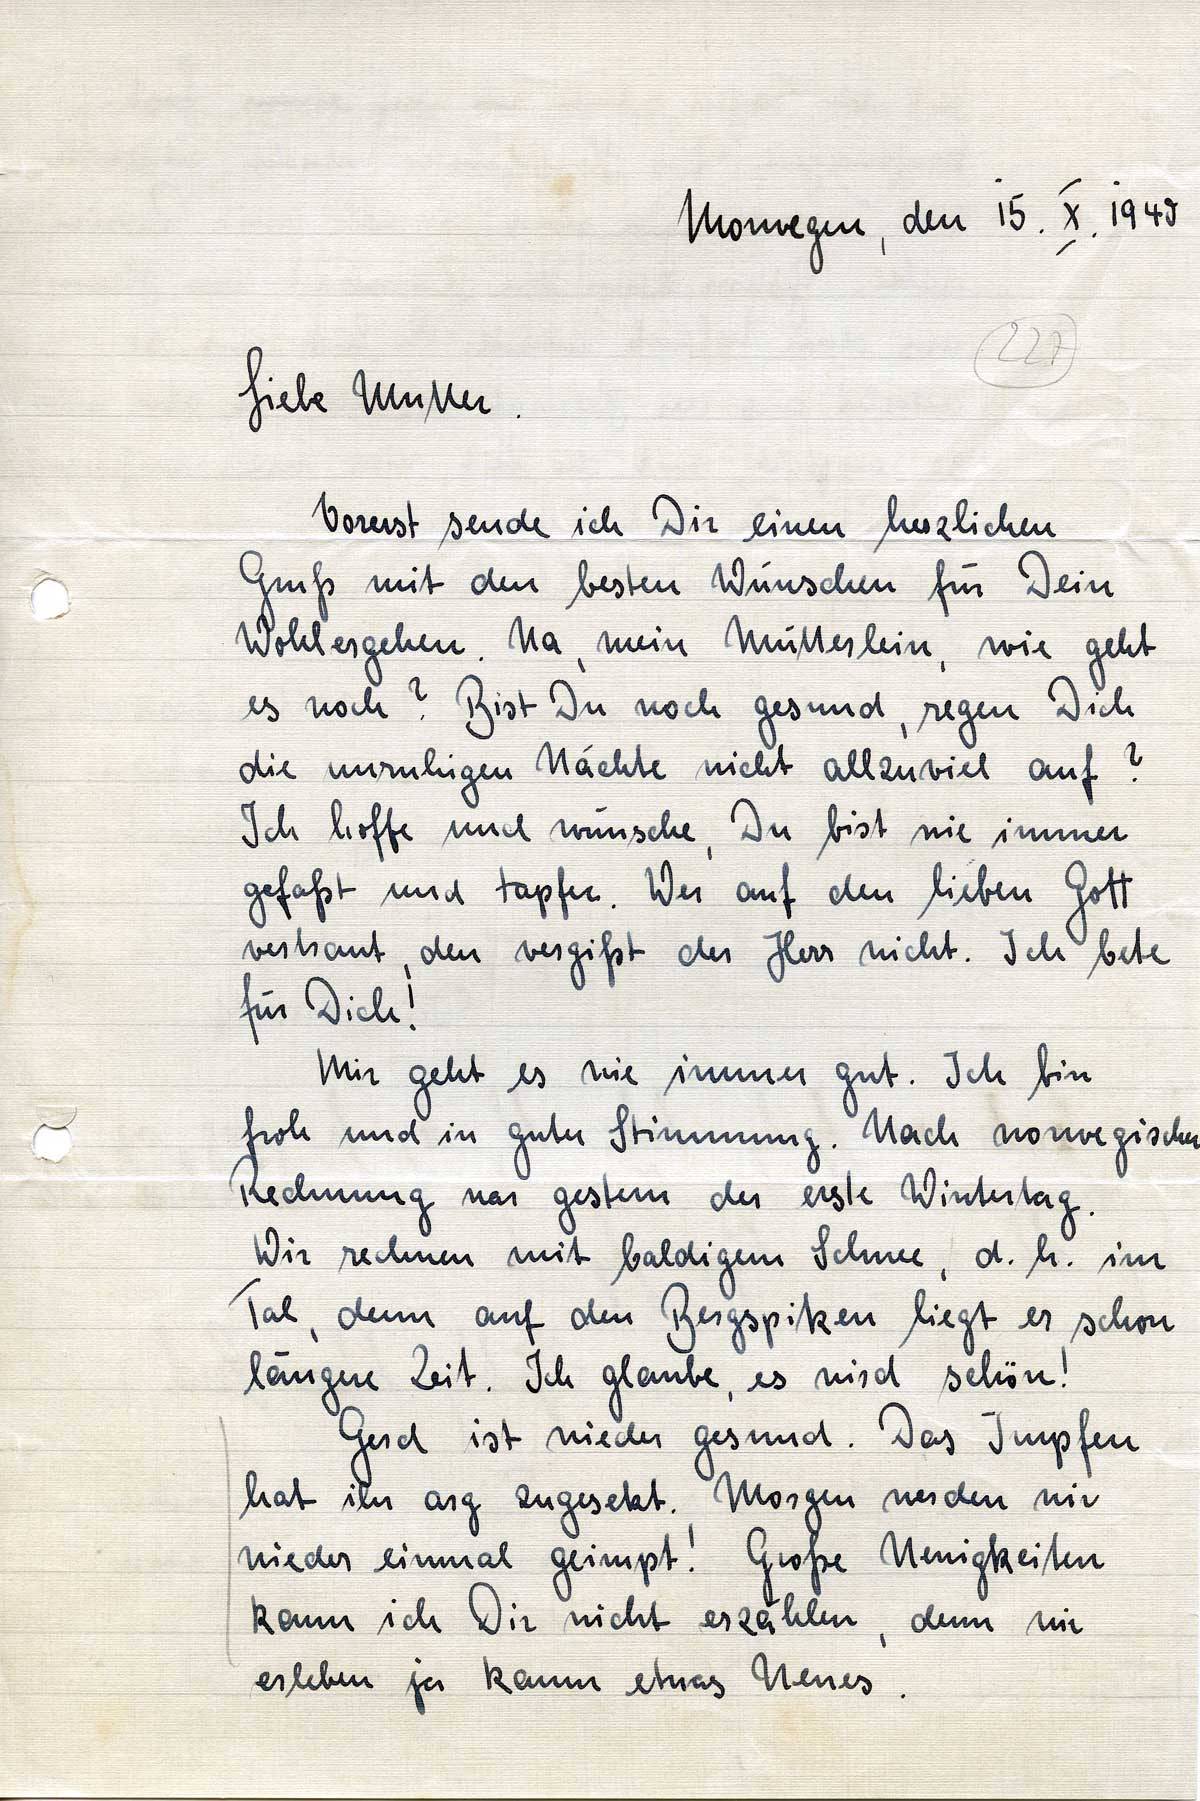 Norwegen, den 15. X. 1940
227
Liebe Mutter.
Vorerst sende ich Dir einen herzlichen
Gruß mit den besten Wünschen für Dein
Wohlergehen. Na, mein Mütterlein, wie geht
es noch? Bist Du noch gesund, regen Dich
die unruhigen Nächte nicht allzuviel auf?
Ich hoffe und wünsche, Du bist wie immer
gefaßt und tapfer. Wer auf den lieben Gott
vertraut, den vergißt der Herr nicht. Ich bete
für Dich!
Mir geht es wie immer gut. Ich bin
froh und in guter Stimmung. Nach norwegischer
Rechnung war gestern der erste Wintertag.
Wir rechnen mit baldigem Schnee, d. h. im
Tal, denn auf den Bergspiken liegt er schon
längere Zeit. Ich glaube, es wird schön!
Gerd ist wieder gesund. Das Impfen
hat ihn arg zugesetzt. Morgen werden wir
wieder einmal geimpt! Große Neuigkeiten
kann ich Dir nicht erzählen, denn wir
erleben ja kaum etwas Neues.